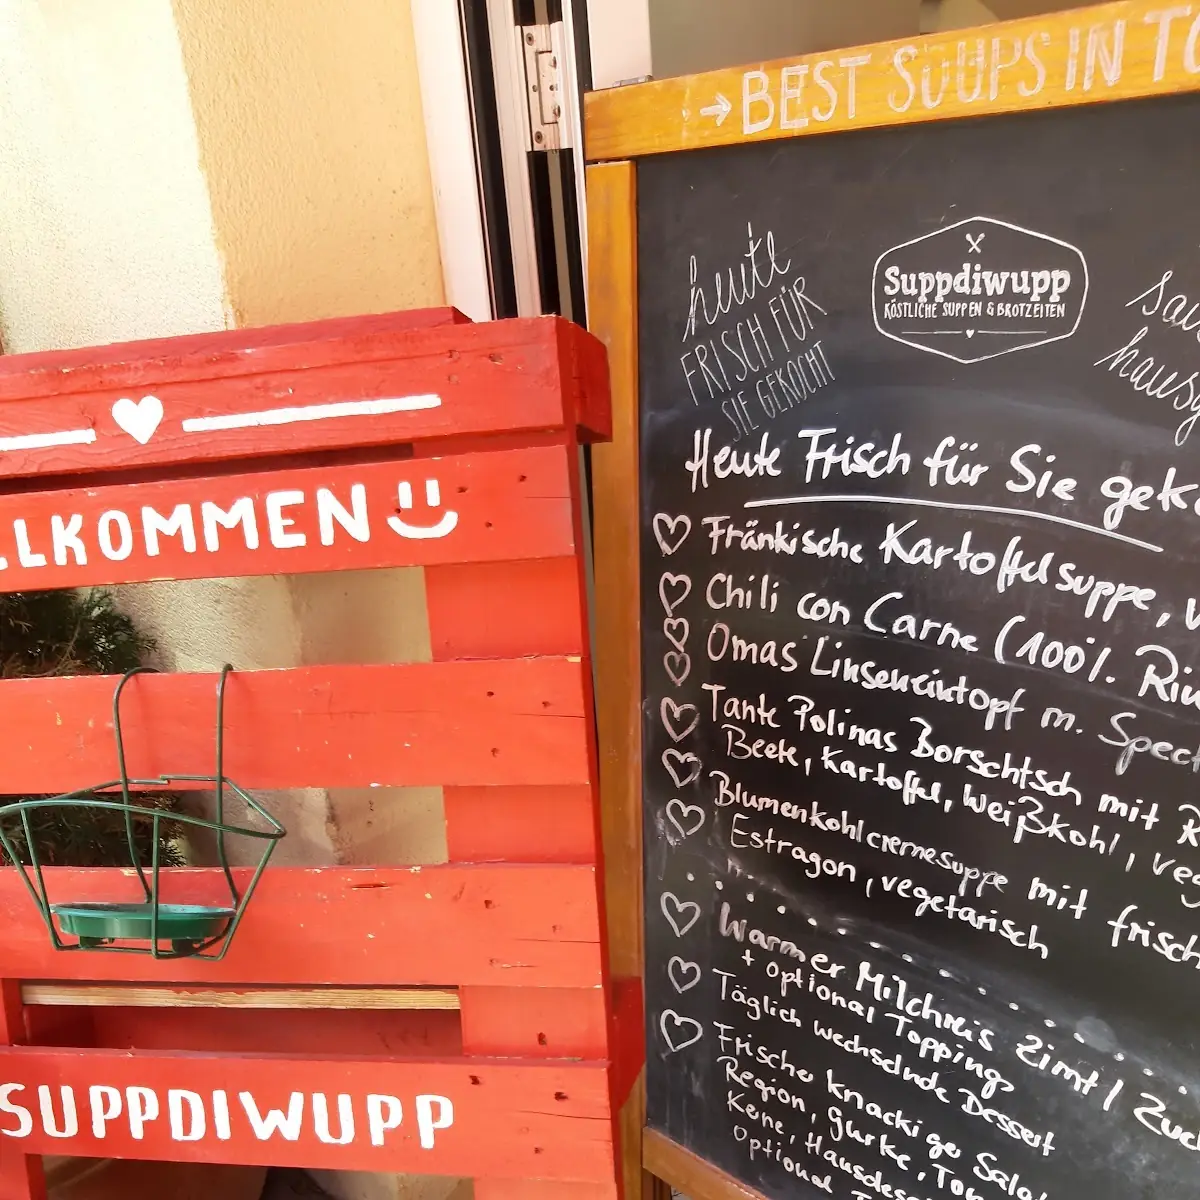 LLKOMMEN
SUPPDIWUPP
→ BEST SOUPS IN TO
heute
FRISCH FÜR
SIE GEKOCHT
Suppdiwupp
KÖSTLICHE SUPPEN & BROTZEITEN
hausg
Heute Frisch für Sie geko
Fränkische Kartoffelsuppe, v
Chili con Carne (100%. Rin
Omas Linseneintopf m. Speck
Tante Polinas Borschtsch mit R
Beete, Kartoffel, Weißkohl, veg
Blumenkohlcremesuppe mit frisch
Estragon, vegetarisch
Warmer Milchreis Zimt / Zuck
+ optional Toppings
Täglich wechselnde Dessert
Frische knackige Sala
Region, Gurke, Tom
Kerne, Hausdes
Optional